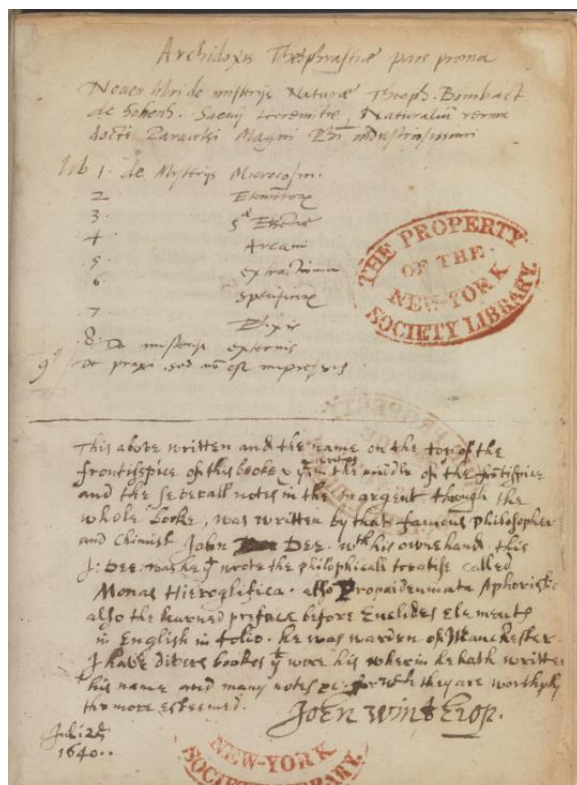 Archidoxis Theophrastiæ pars prima
Novem libri de misterijs Naturæ Theoph. Bombast
de Hohenh. Suevij Heremitæ, Naturalium rerum
docti Paracelsi Magni Phi industriosissimi
lib 1. de Mysterijs Microcosmi.
2 Elementorum
3. 5æ Essentiæ
4 Arcani
5 extractionum
6 specificorum
7 Elixir
8. De misterijs externis
9 De praxi sed non est impressus
THE PROPERTY
OF THE
NEW-YORK
SOCIETY LIBRARY.
This above written and the name on the top of the
frontispice of this booke & in the middle of the frõtispice
and the severall notes in the margent through the
whole booke, was written by that famous philosopher
and Chimist John Dee. wth his owne hand. this
J: Dee. was he yt wrote the philosophicall treatise called
Monas Hieroglifica. also Propaideumata Aphoristic
also the learned preface before Euclides Elements
in English in folio. he was warden of Manchester
I have divers bookes yt were his wherin he hath written
his name and many notes for wch they are worthyly
the more esteemed.
John Winthrop.
Juli 25
1640..
NEW-YORK
SOCIETY LIBRARY.